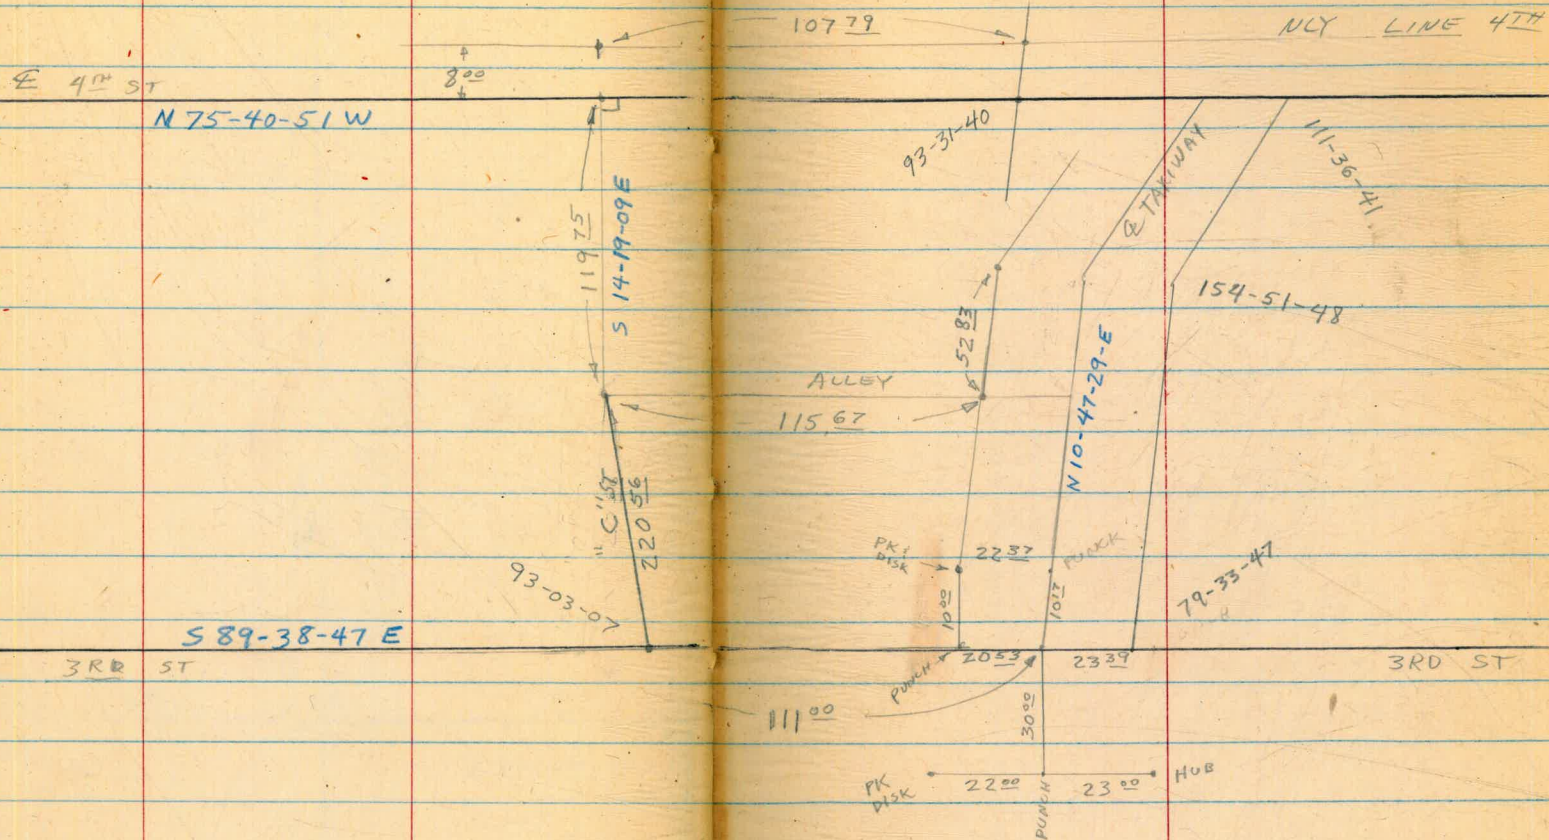 107 79
NLY LINE 4TH
℄ 4TH ST
8 00
N 75-40-51 W
93-31-40
111-36-41
℄ TAXIWAY
119 75
S 14-19-09 E
154-51-48
52 83
N 10-47-29-E
ALLEY
115.67
"C" ST
220 56
PK. DISK
22 37
PUNCH
93-03-07
10 00
10 17
79-33-47
S 89-38-47 E
3RD ST
PUNCH
20 53
23 39
3RD ST
111 00
30 00
PK DISK
22 00
23 00
HUB
PUNCH